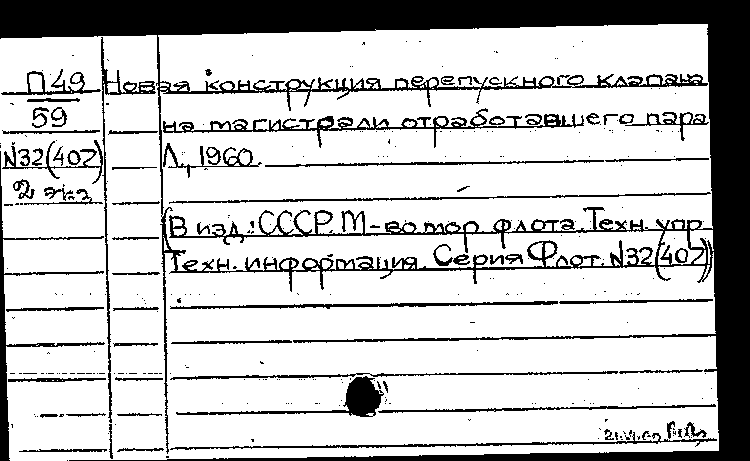 П 49
59
N32(402)
2 экз
Новая конструкция перепускного клапана
на магистрали отработавшего пара
Л., 1960.
(В изд.: СССР. М-во мор. флота. Техн. упр.
Техн. информация. Серия Флот. N32(402))